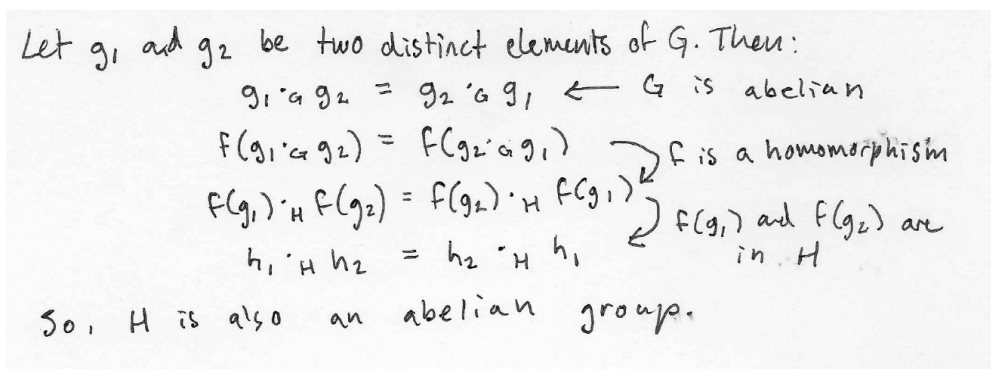 Let g₁ and g₂ be two distinct elements of G. Then:
g₁ ·G g₂ = g₂ ·G g₁ ← G is abelian
f(g₁ ·G g₂) = f(g₂ ·G g₁)
f is a homomorphism
f(g₁) ·H f(g₂) = f(g₂) ·H f(g₁)
f(g₁) and f(g₂) are
in H
h₁ ·H h₂ = h₂ ·H h₁
So, H is also an abelian group.